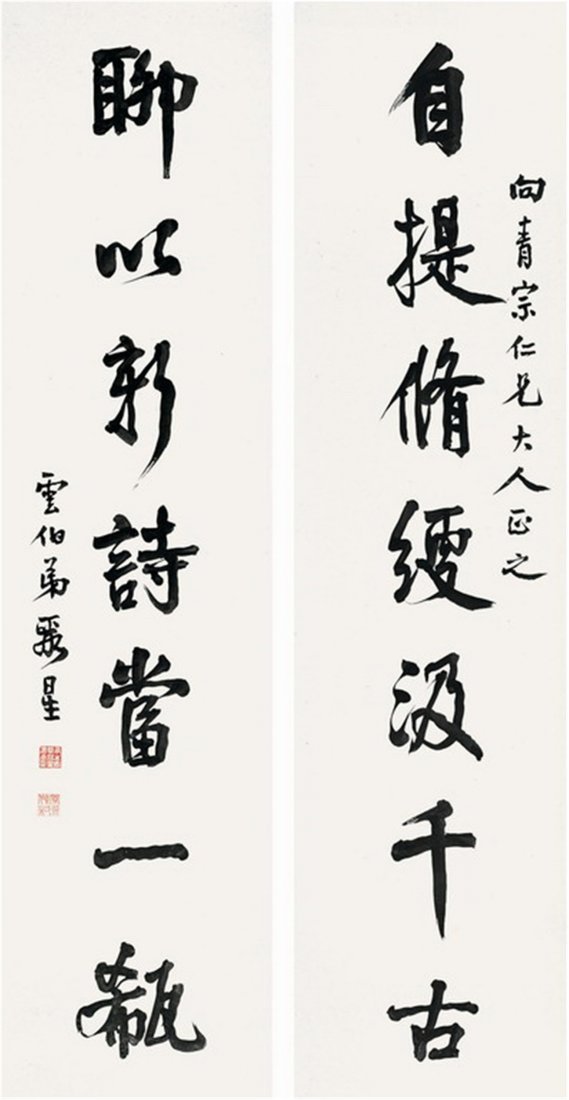 向青宗仁兄大人正之
自提脩綆汲千古
聊以新詩當一瓻
雲伯弟星